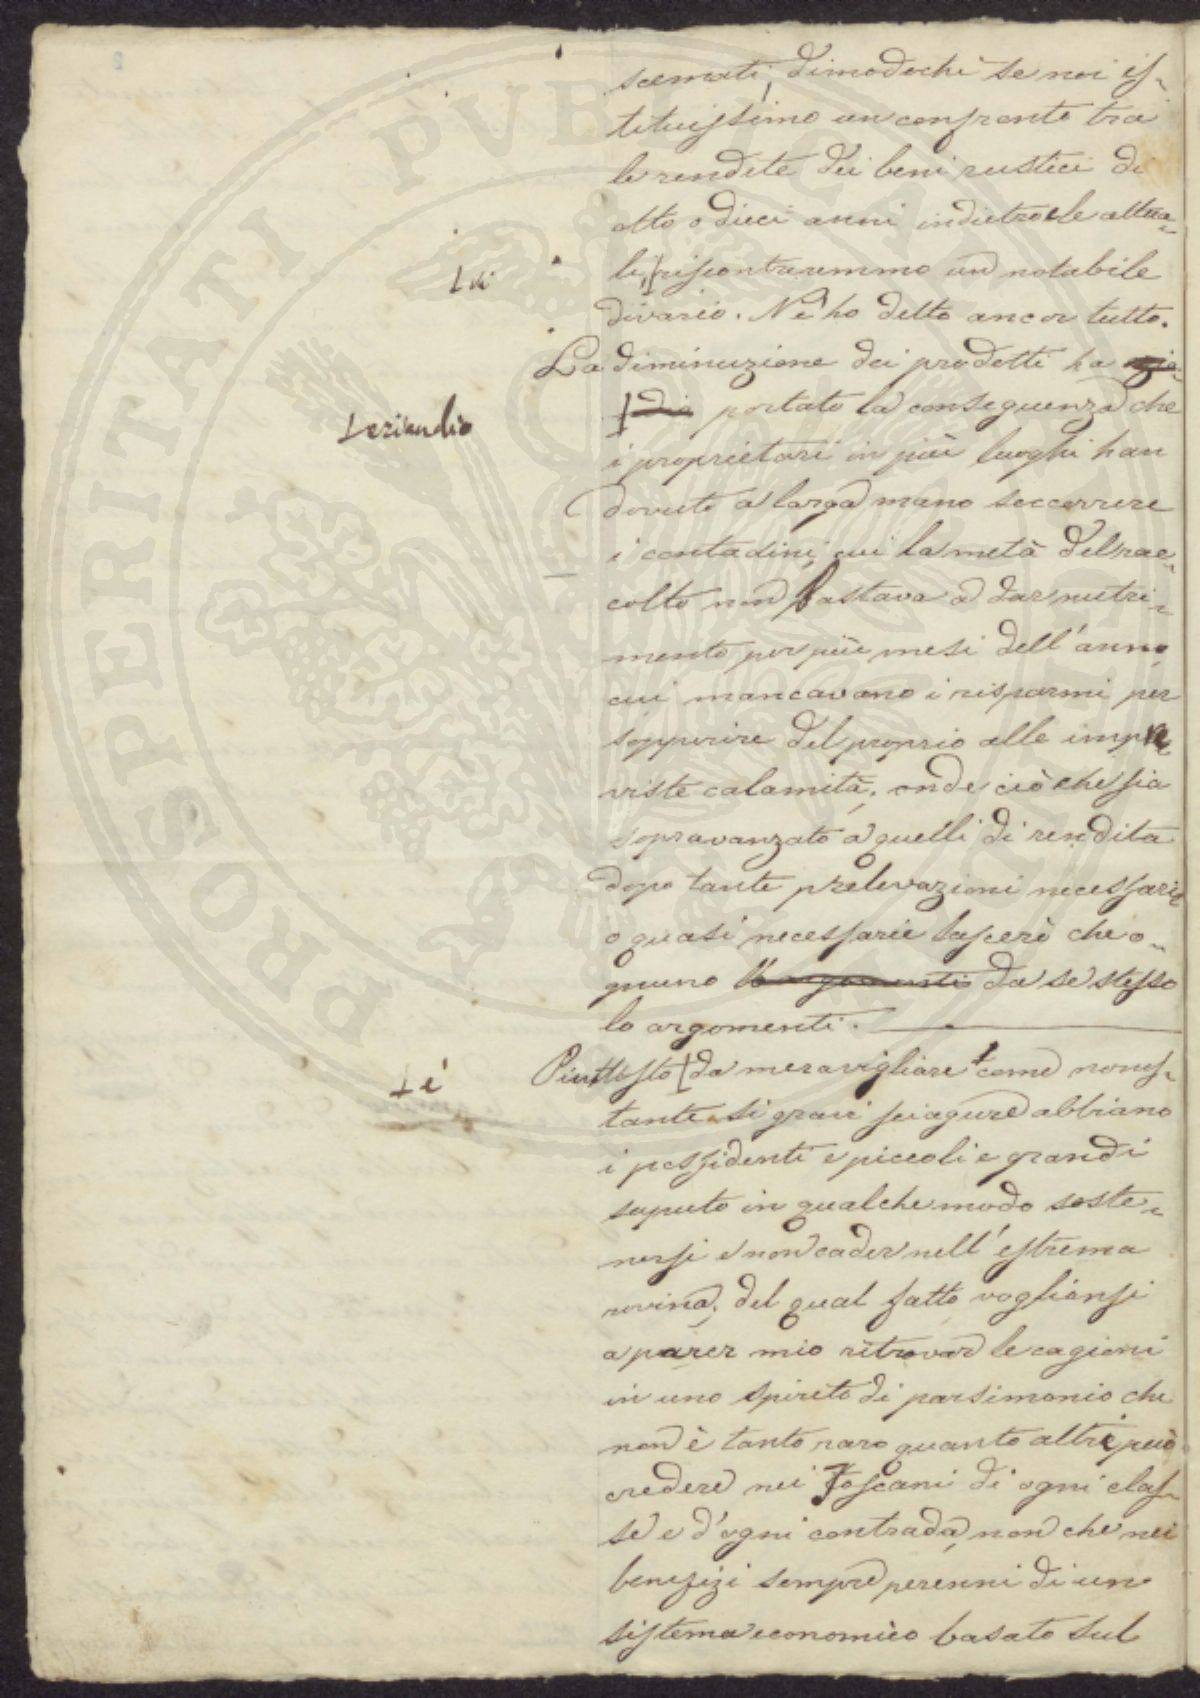 scemati, dimodochè se noi is-
tituissimo un confronto tra
le rendite dei beni rustici di
otto o dieci anni indietro e le attua-
li, riscontraremmo un notabile
divario. Nè ho detto ancor tutto.
La diminuzione dei prodotti ha
portato la conseguenza che
i proprietari in più luoghi han
dovuto a larga mano soccorrere
i contadini, cui la metà del rac-
colto non bastava a dar nutri-
mento per più mesi dell'anno
cui mancavano i risparmi per
sopperire del proprio alle impre
viste calamità, onde ciò che sia
sopravanzato a quelli di rendita
dopo tante prelevazioni necessarie
o quasi necessarie lascerò che o-
gnuno lo argomenti da se stesso
lo argomenti.
Piuttosto da meravigliare come nonos-
tante si gravi sciagure abbiano
i possidenti e piccoli e grandi
saputo in qualche modo soste-
nersi e non cader nell'estrema
rovina, del qual fatto voglionsi
a parer mio ritrovar le cagioni
in uno spirito di parsimonia che
non è tanto raro quanto altri può
credere nei Toscani di ogni clas-
se e d'ogni contrada, non che nei
benefizi sempre perenni di un
sistema economico basato sul
PROSPERITATI PVBLICAE